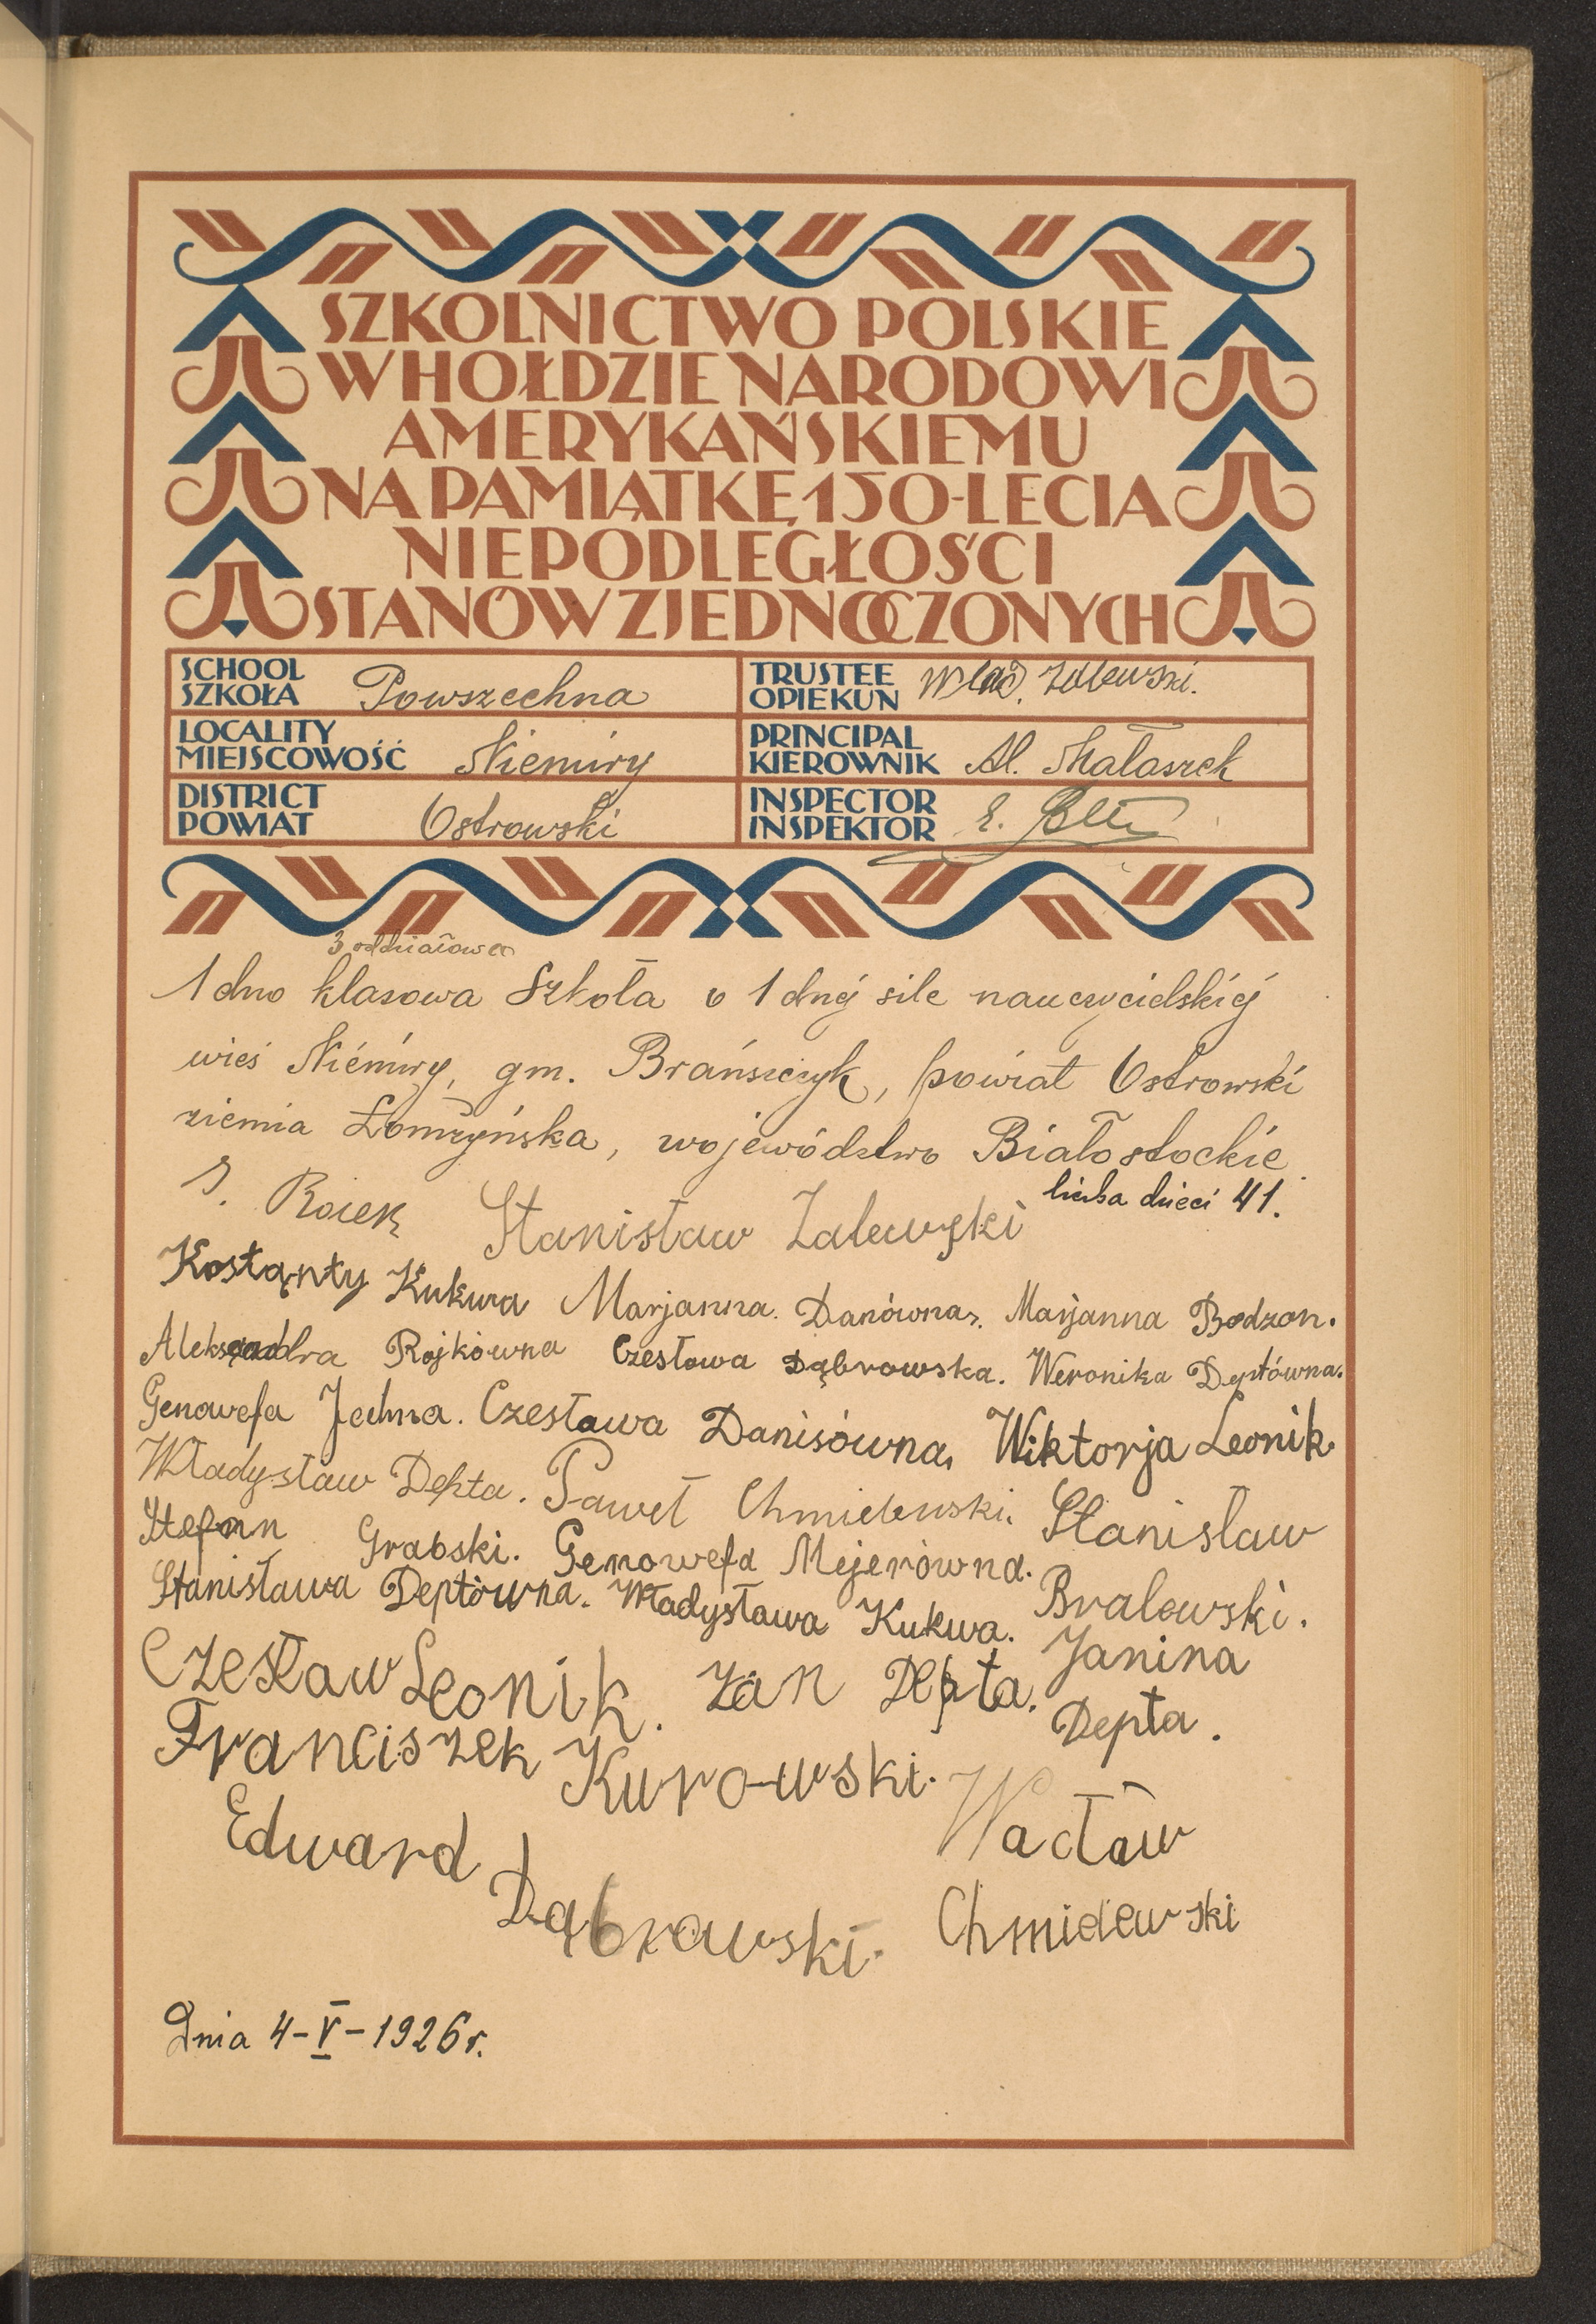 SZKOLNICTWO POLSKIE
W HOŁDZIE NARODOWI
AMERYKAŃSKIEMU
NA PAMIĄTKĘ 150-LECIA
NIEPODLEGŁOŚCI
STANÓW ZJEDNOCZONYCH
SCHOOL
SZKOŁA Powszechna
TRUSTEE
OPIEKUN Wład. Zalewski.
LOCALITY
MIEJSCOWOŚĆ Niemiry
PRINCIPAL
KIEROWNIK Al. Małaszek
DISTRICT
POWIAT Ostrowski
INSPECTOR
INSPEKTOR E.
3 oddziałowa
1dno klasowa Szkoła o 1dnej sile nauczycielskiej
wieś Niemiry, gm. Brańszczyk, powiat Ostrowski
ziemia Łomżyńska, województwo Białostockie
liczba dzieci 41.
Stanisław Zalewski
Kostąnty Kukwa Marjanna Danówna. Marjanna Bodzon.
Aleksandra Rojkówna Czesława Dąbrowska. Weronika Deptówna.
Genowefa Jedna. Czesława Danisówna. Wiktorja Leonik.
Władysław Depta. Paweł Chmielewski. Stanisław
Bralewski.
Stefan Grabski. Genowefa Mejerówna.
Stanisława Deptówna. Władysława Kukwa.
Janina
Depta.
Czesław Leonik. Jan Depta.
Franciszek Kurowski.
Wacław
Chmielewski
Edward
Dąbrowski.
Dnia 4-V-1926r.